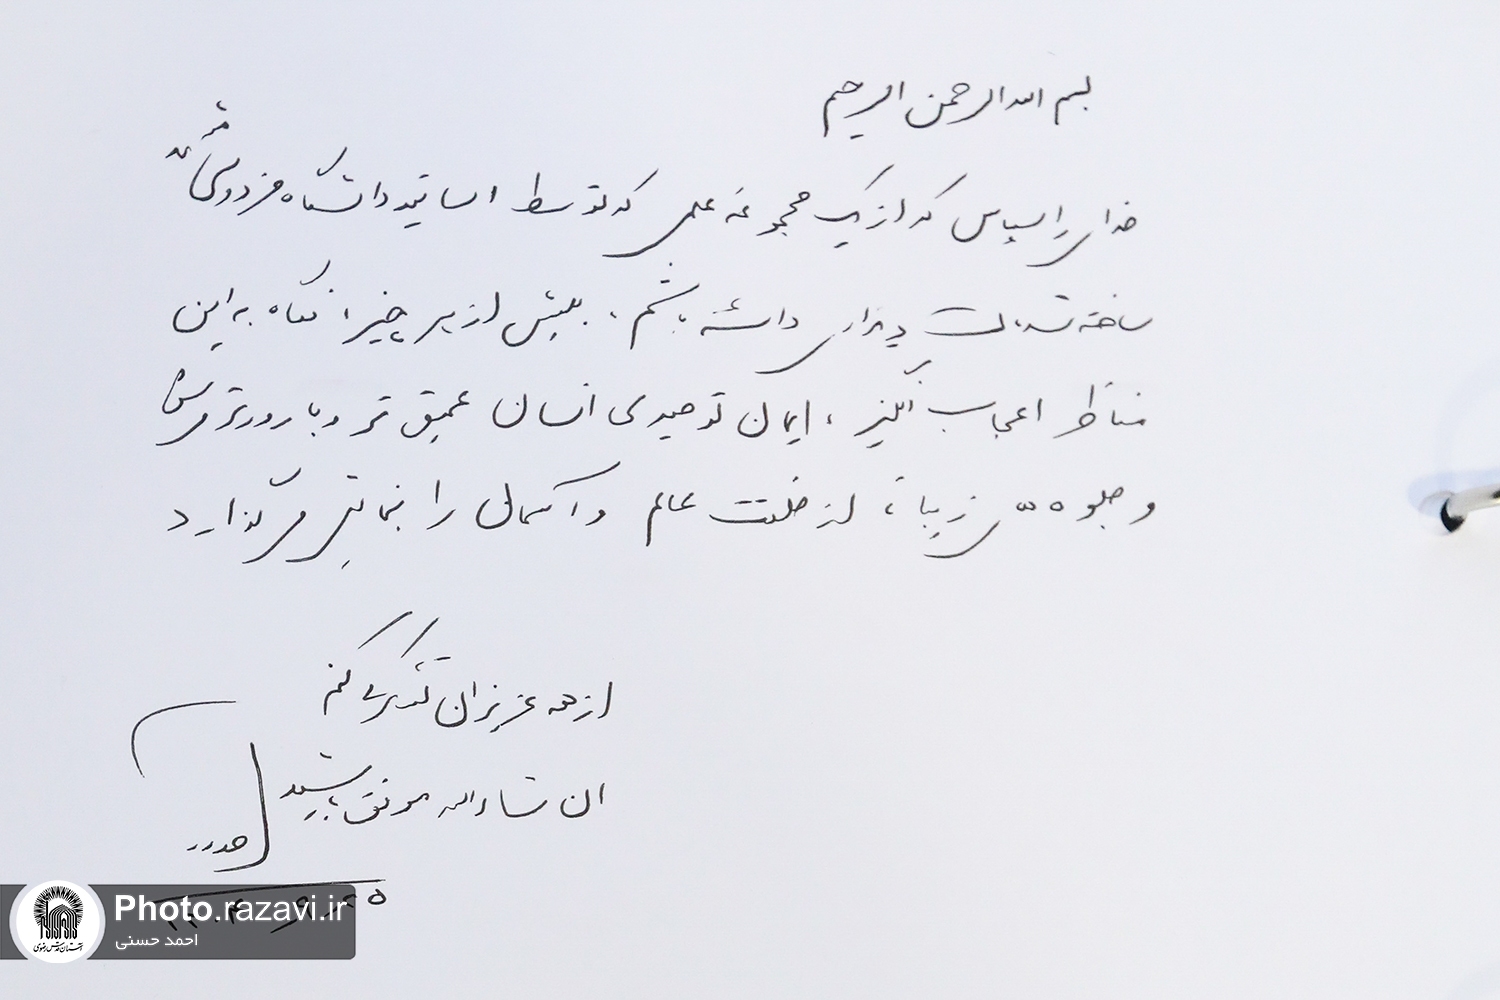 بسم الله الرحمن الرحیم
خدای را سپاس که از یک مجموعه علمی که توسط اساتید دانشگاه فردوسی مشهد
ساخته شده است دیداری داشته باشم، بیش از هر چیز، نگاه به این
مناظر اعجاب انگیز، ایمان توحیدی انسان عمیق تر و بارورتر می‌شود
و جلوه های زیبا، از خلقت عالم و آسمان را بنمایش می‌گذارد
از همه عزیزان تشکر می‌کنم
ان شاءالله موفق باشید
Photo.razavi.ir
احمد حسنی
آستان قدس رضوی